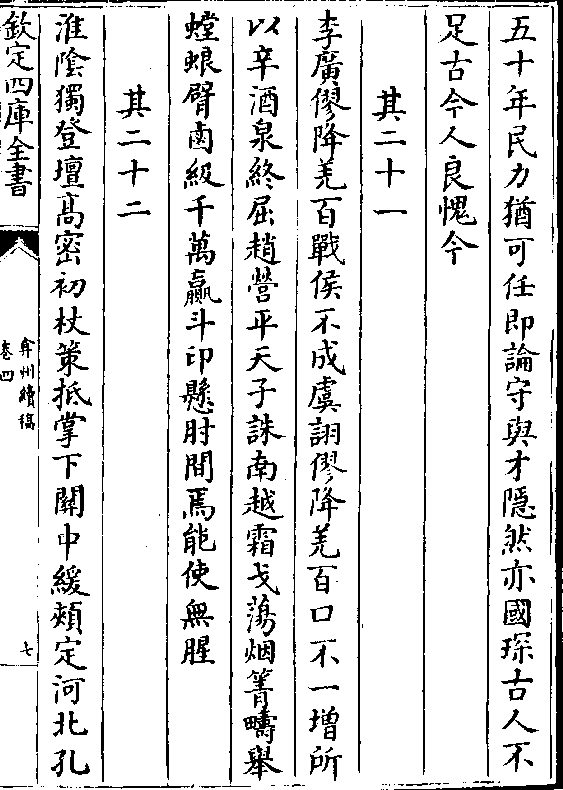 五十年民力猶可任即論守與才隱然亦國琛古人不
足古今人良愧今
其二十一
李廣僇降羌百戰侯不成虞詡僇降羌百口不一增所
以辛酒泉終屈趙營平天子誅南越霜戈蕩烟箐疇舉
螳蜋臂鹵級千萬贏斗印懸肘間焉能使無腥
其二十二
淮陰獨登壇高密初杖策抵掌下關中緩頰定河北孔
欽定四庫全書
弇州續稿
卷四
七